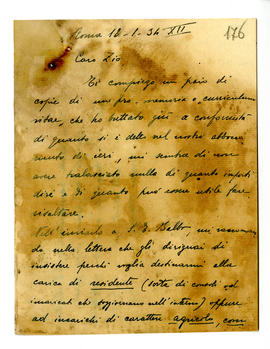 Roma 18-1-34 XII
176
Caro Zio,
Ti compiego un paio di
copie di una memoria e curriculum
vitae, che ho buttato giù a conformità
di quanto si è detto nel nostro abboc
camento di ieri, mi sembra di non
aver tralasciato nulla di quanto
dirsi e di quanto può essere utile fare
risaltare.
Nell'inviarlo a S. E. Balbo, mi raccoman
do nella lettera che gli dirigerai di
insistere perchè voglia destinarmi alla
carica di residente (sorta di consoli od
incaricati che soggiornano nell'interno) oppure
ad incarichi di carattere agricolo, com